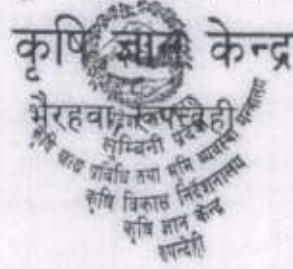 कृषि ज्ञान केन्द्र
भैरहवा, रूपन्देही
लुम्बिनी प्रदेश
कृषि तथा भूमि व्यवस्था मन्त्रालय
कृषि विकास निर्देशनालय
कृषि ज्ञान केन्द्र
रुपन्देही